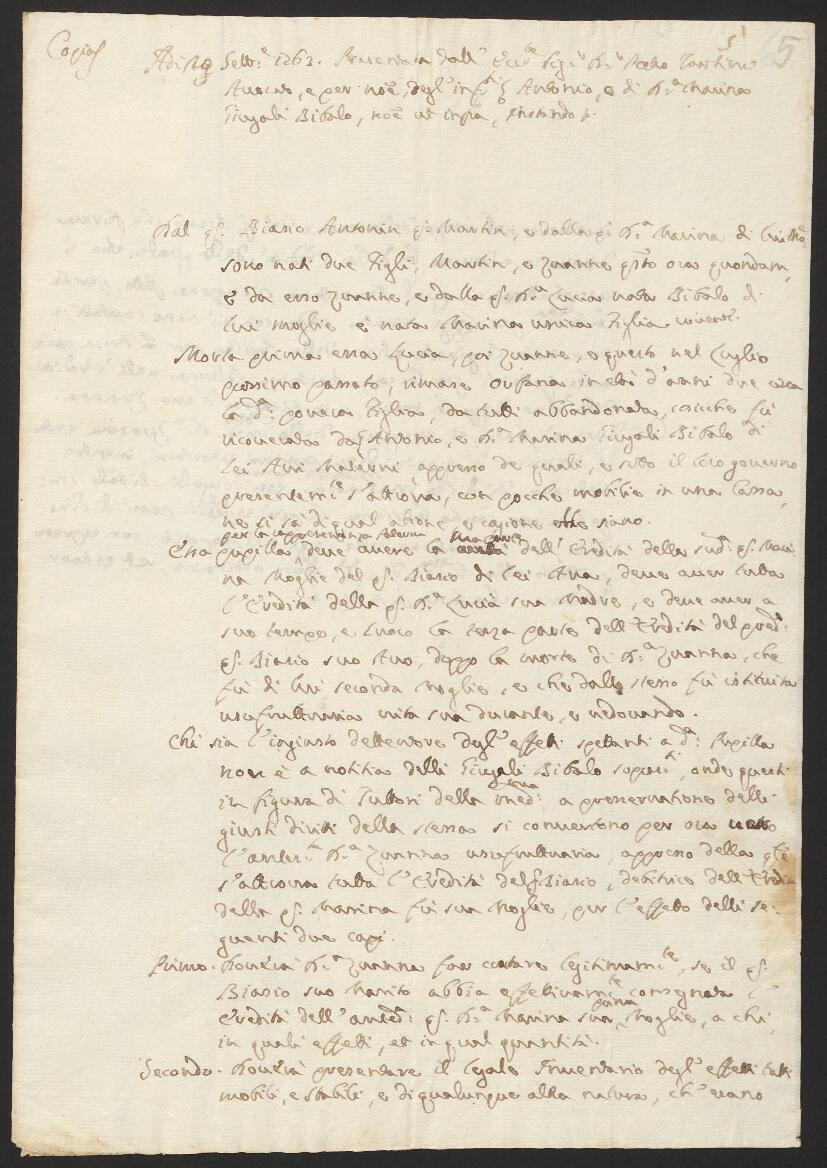 Copia
5
Adi 19 Settre 1763. Presentata dall' Eccte Sigr Dr Pietro
Avocato, e per noe degl' infrti q Antonio, e di Da Marina
Giugali Bibalo, noe ut infra, instando p.
Dal q. Biasio Antonin q. Martin, e dalla q. Da Marina di lui Mo.
sono nati due Figli, Martin, e Zuanne qsto ora quondam,
e da esso Zuanne, e dalla q. Da Lucia nata Bibalo di
lui moglie è nata Marina unica Figlia vivente.
Morta prima essa Lucia, poi Zuanne, e questo nel Luglio
prossimo passato, rimase orfana in età d'anni due circa
la da povera Figlia, da tutti abbandonata, cosicche fù
ricoverata da q Antonio, e Da Marina Giugali Bibalo di
lei Avi Materni, appresso de quali, e sotto il loro governo
presentemte s'attrova, con pocche mobilie in una Cassa,
ne si sà di qual ragione, e cagione esse siano.
per la rappresentanza Paterna
Essa pupilla deve avere la metà dell' Eredità della sudta q. Mari-
na Moglie del q. Biasio di lei Ava, deve aver tutta
l'Eredità della q. Da Lucia sua Madre, e deve aver a
suo tempo, e luoco la terza parte dell' Eredità del pred:
q. Biasio suo Avo, doppo la morte di Da Zuanna, che
fù di lui seconda Moglie, e che dallo stesso fù istituita
usufruttuaria vita sua durante, e vedovando.
Chi sia l'ingiusto dettentore degl' effetti spettanti a da Pupilla
non è a notitia delli Giugali Bibalo soprati, onde questi
in figura di Tuttori della medma a preservatione delli
giusti diritti della stessa si convertono per ora verso
l'antedta Da Zuanna usufruttuaria, appresso della qle
s'attrova tutta l'Eredità del q Biasio, debitrice dell' Eredità
della q. Marina fù sua Moglie, per l'effetto delli se-
guenti due capi.
Primo. Dovrà Da Zuanna far constare legitimamte, se il q.
Biasio suo Marito abbia effetivamte consegnata l'
Eredità dell' anted: q. Da Marina sua prima Moglie, a chi,
in quali effetti, et in qual quantità.
Secondo. Dovrà presentare il legale Inventario degl' effetti tutti
mobili, e stabili, e di qualunque altra natura, ch' erano